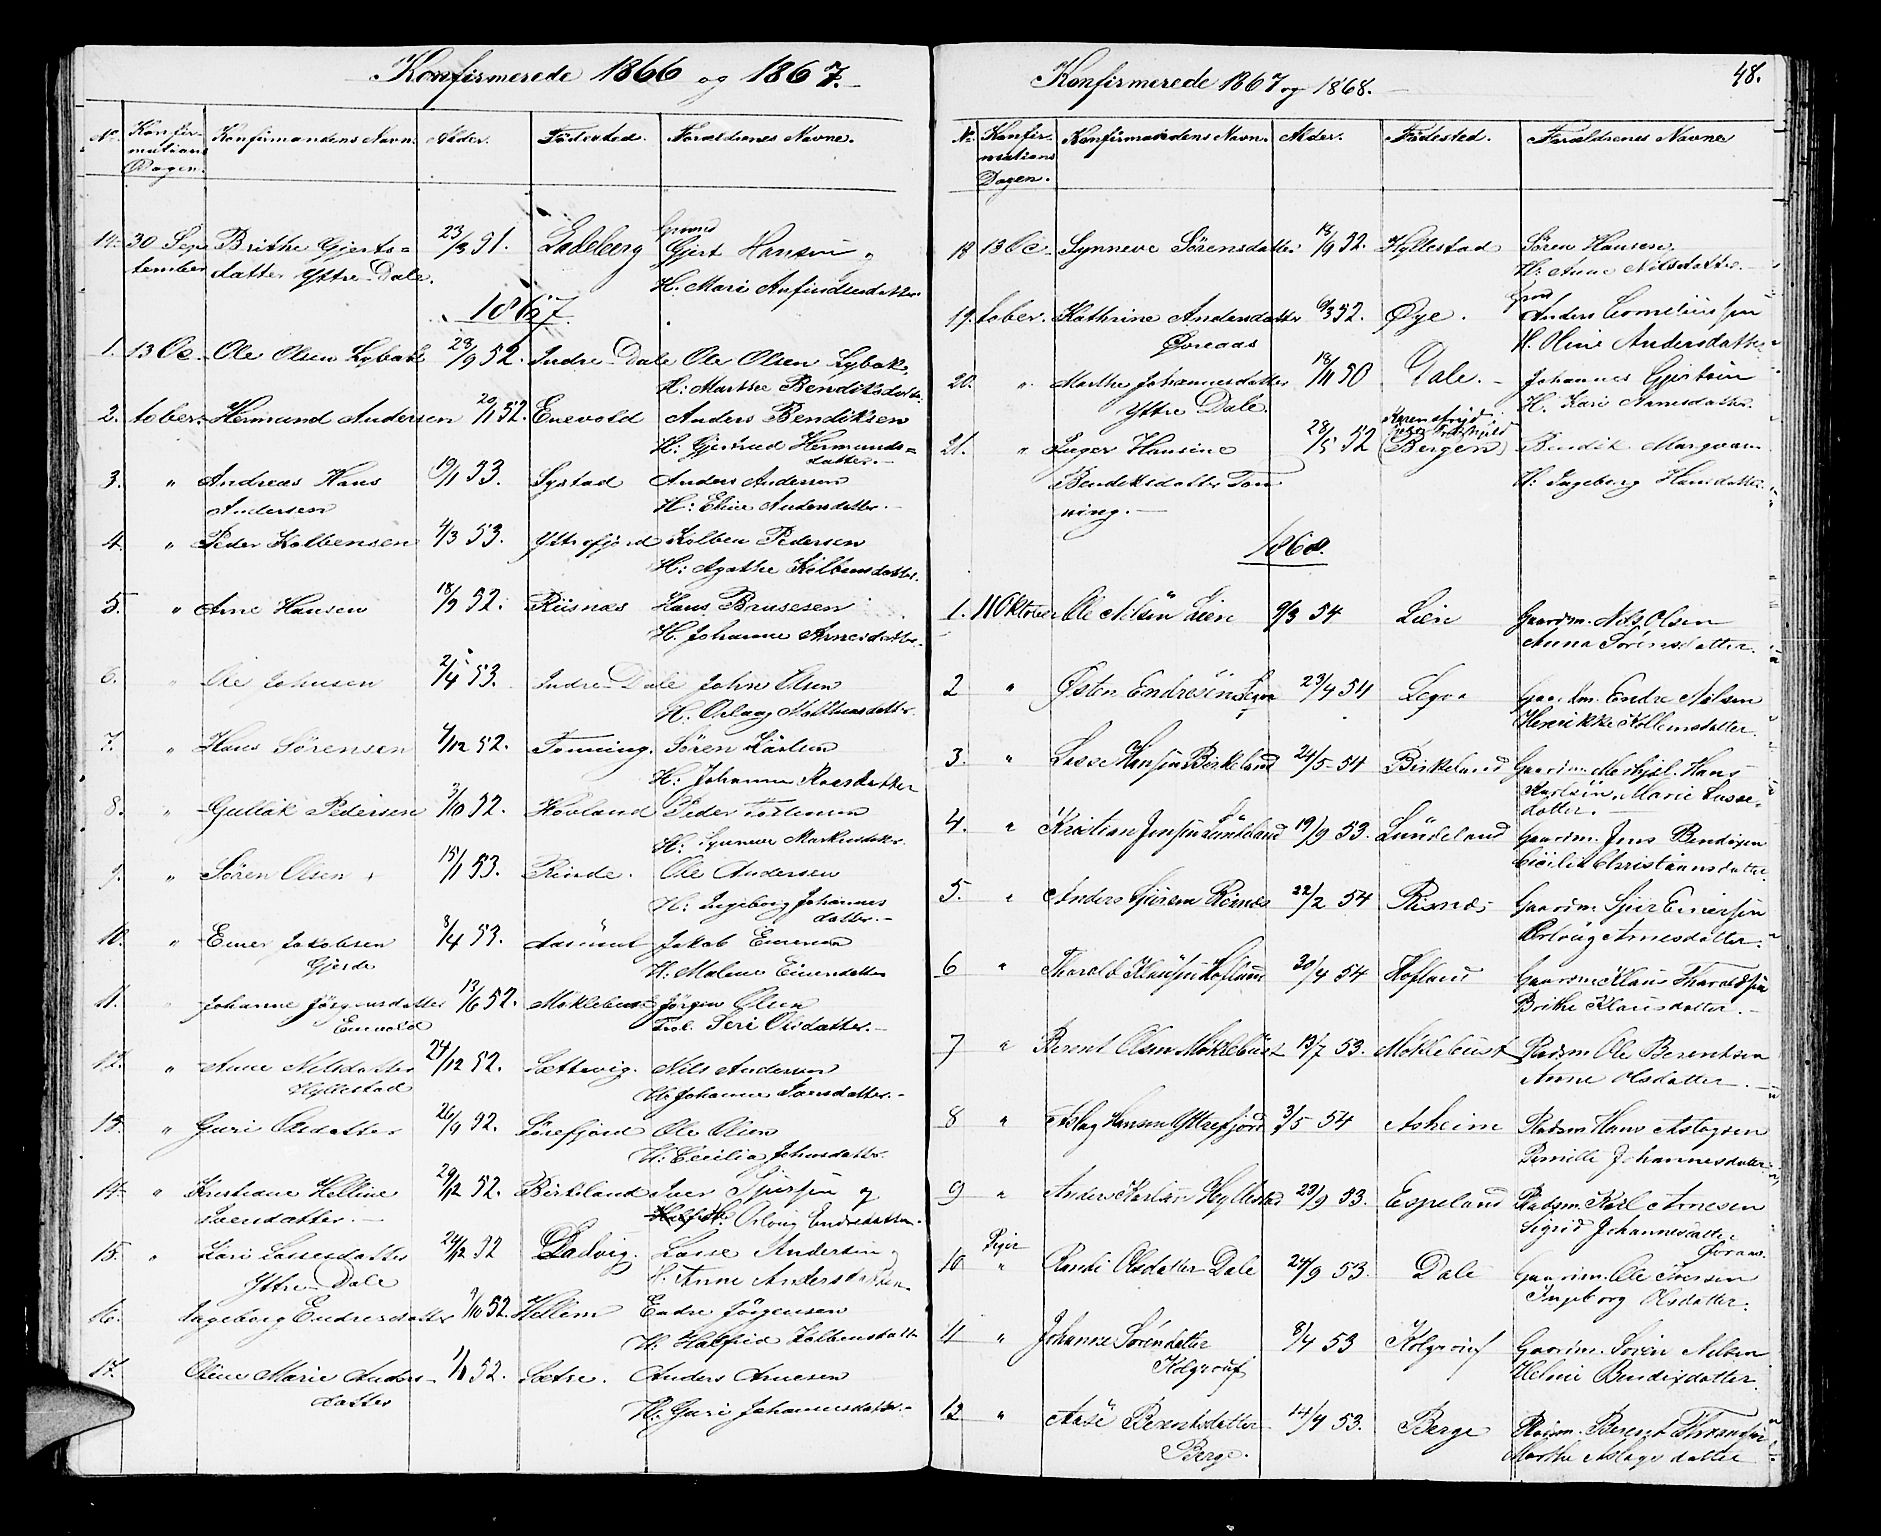 Konfirmerede 1866 og 1867.
No. Konfirmations Dagen. Konfirmandens Navn. Alder. Fødested. Forældrenes Navne.
14. 30 Sep- Brithe Gjerts= 23/3 51. Ladeberg Gjert Hansen
tember datter Yttre Dale. H: Mari Anfindsdatter
1867.
1. 13 Oc- Ole Olsen Lybak 28/9 52. Indre Dale Ole Olsen Lybak
H: Marthe Bendiksdatter
2. tober. Hermund Andersen 20/11 52. Enevold Anders Bendiksen
H: Gjertrud Hermunds=
datter.
3. " Andreas Hans 19/1 53. Systad Anders Andersen
Andersen H: Eline Andersdatter.
4. " Peder Kolbensen 4/3 53. Yttrefjord Kolben Pedersen
H: Agathe Kolbensdatter.
5. " Arne Hansen 18/9 52. Risnæs Hans Brusesen
H. Johanne Arnesdatter
6. " Ole Johnsen 2/4 53. Indre Dale John Olsen
H. Orlaug
7. " Hans Sørensen 4/12 52. Tonning. Søren Karlsen
H: Johanne
8. " Gullak Pedersen 3/10 52. Hovland Peder
H: Synneve Markusdatter
9. " Søren Olsen 15/1 53. Rinde. Ole Andersen
H: Ingeborg Johannes
datter.
10. " Einer Jakobsen 8/4 53. Jakob Einersen
Gjerde H. Malene Einersdatter
11. Johanne Jørgensdatter 13/6 52. Møklebust Jørgen Olsen
Enevold Seri Olsdatter.
12. " Anne Nilsdatter 24/12 52. Sættevig. Nils Andersen
Hyllestad H. Johanne Larsdatter.
13. " Guri Olsdatter 26/9 52. Sørefjord Ole Olsen
H: Cecilia Johnsdatter
14. " Kristiane Helline 29/12 52. Birkeland Iver og
Iversdatter. H. Orloug Endredatter.
15. " Kari Lassesdatter 24/12 52 Ladvig. Lasse Andersen
Yttre Dale H. Anne Andersdatter
16. Ingeborg Endresdatter 9/10 52. Hellem Endre Jørgensen
H. Halfrid Kolbensdatter
17. Oline Marie Anders- 1/11 52. Sætre. Anders Arnesen
datter H. Guri Johannesdatter.
Konfirmerede 1867 og 1868. 48.
No. Konfirmations Dagen. Konfirmandens Navn. Alder. Fødested. Forældrenes Navne
18 13 Oc- Synneve Sørensdatter 18/9 52. Hyllestad Søren Hansen
H. Anne Nilsdatter.
19. tober. Kathrine Andersdatter 9/3 52. Øye. Anders Cornelius'sen
Øveaas H. Oline Andersdatter
20. " Marthe Johannesdatter 18/11 50 Dale. Johannes Gjertsen
Yttre Dale H. Kari Arnesdatter.
21. " Inger Hansine 28/5 52 (Bergen) Bendik
Bendiksdatter Ton H. Ingeborg Hansdatter.
ning.
1868.
1. 11 Oktober Ole Nilsen Lien 9/3 54 Lien Gaardm. Nils Olsen
Anna Sørensdatter.
2 " Østen Endresen Legva 23/4 54 Legva Gaardm. Endre Nilsen
Henrikke Kolbensdatter.
3. " Lasse Hansen Birkeland 24/5 54 Birkeland Gaardm. Hans
Karlsen, Marie Lasse-
datter.
4. " Kristian Jensen Lundeland 19/9 53. Lundeland Gaardm. Jens Bendixen
Cicilia Christiansdatter.
5. " Anders Risnæs 22/2 54 Risnæs Gaardm. Einersen
Orloug Arnesdatter.
6 " Tharald Klausen Hofland 30/4 54 Hofland Gaardm. Klaus Tharaldsen
Brithe Klausdatter.
7 " Berent Olsen Møklebust 13/7 53. Møklebust Pladsm. Ole Berentsen
Anne Olsdatter.
8 " Aslag Hansen Yttrefjord 3/5 54 Asheim Pladsm. Hans Aslagsen
Pernille Johannesdatter
9 " Anders Karlsen Hyllestad 23/9 53. Espeland Pladsm. Karl Arnesen
Sigrid Johannesdatter
Piger
10 " Randi Olsdatter Dale 24/9 53. Dale Gaardm. Ole Iversen
Ingeborg Olsdatter.
11 " Johanne Sørensdatter 8/4 53 Kolgrouf Gaardm. Søren Nilsen
Kolgrouf Heline Bendixdatter
12 " Aase Berentsdatter 14/4 53. Berge Pladsm. Berent
Berge. Marthe Aslagsdatter